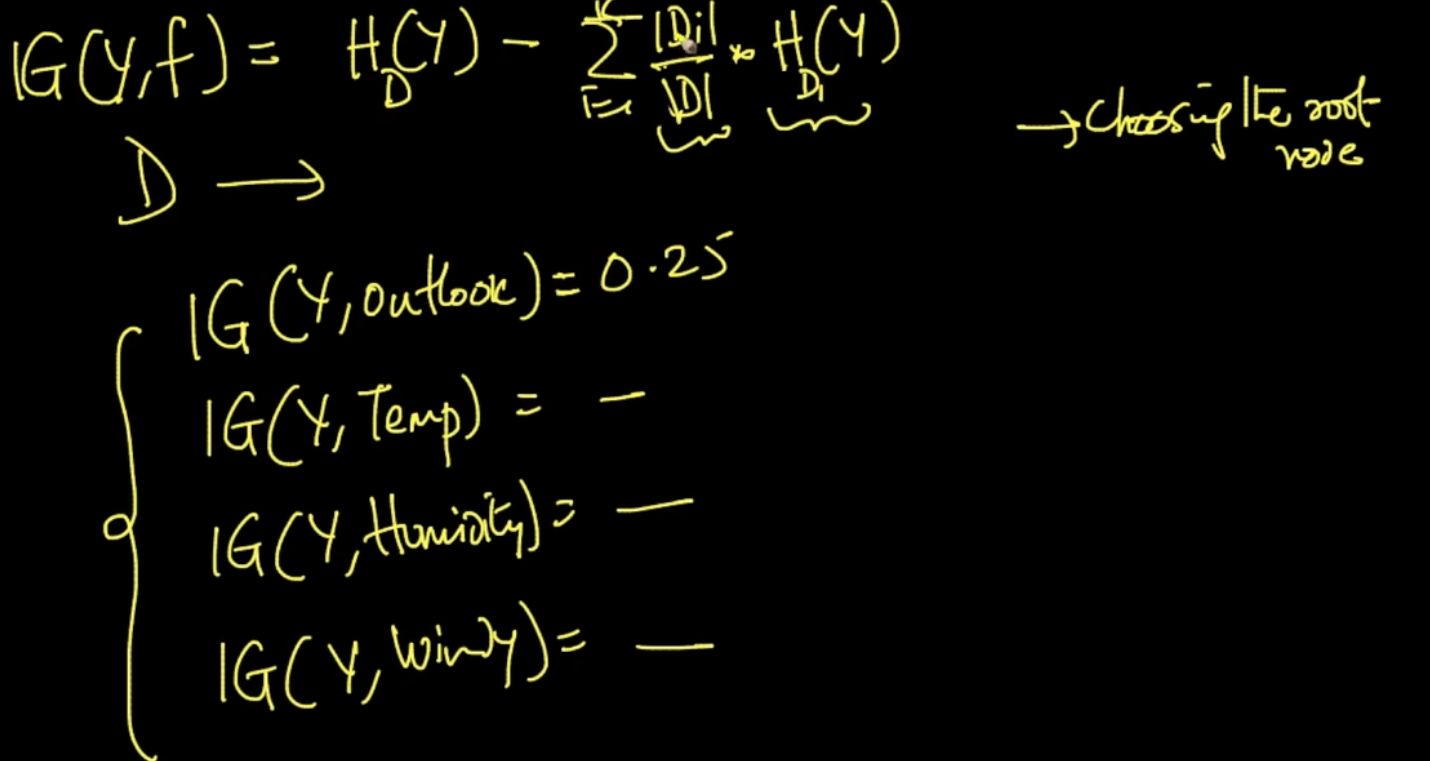 IG(Y,f) = H_D(Y) - Σ_{i=1}^{k} |Di|/|D| * H_Di(Y)
→ Choosing the root
node
D →
IG(Y, outlook) = 0.25
IG(Y, Temp) = —
IG(Y, Humidity) = —
IG(Y, Windy) = —